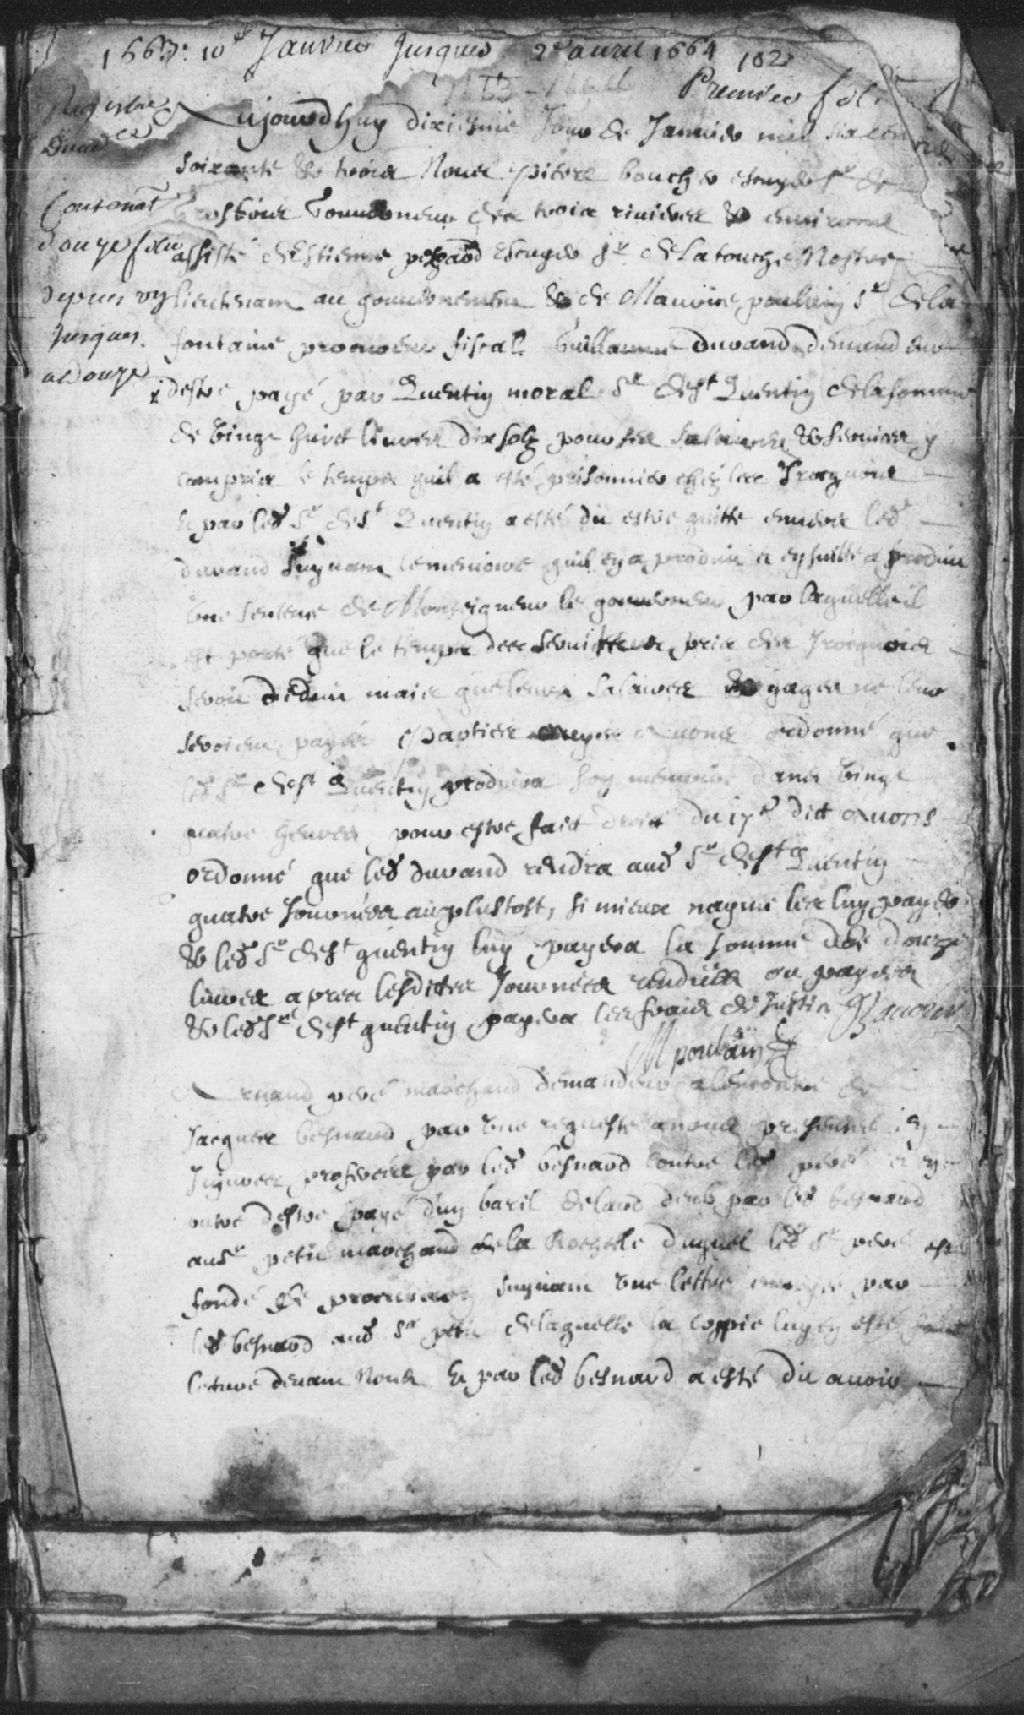 1663: 10e Janvier Jusques 2e avril 1664 102
Premier fol
Registre
d'une
Contenant
douze feu
depuis
Jusques
a douze
Aujourdhuy dixiesme Jour de Janvier mil six cens
soixante & trois Nous Pierre boucher escuyer Sr de
Grosboies Gouverneur des trois rivieres & environs
assisté dEstienne pezard Escuyer Sr de la touche Nostre
lieutenant au gouvernement & de Maurice poulain Sr de la
fontaine procureur fiscal Guillaume duvand demandeur
destre payé par Quentin moral Sr de St Quentin de la somme
de vingt huict livres dix solz pour ses salaires & services y
compris le temps quil a esté prisonnier chez les Iroquois
Et par led Sr de St Quentin a esté dit estre quitte envers led
duvand suyvant le memoire quil en a produit et ensuitte a produit
Une sentence de Monseigneur le gouverneur par laquelle il
est porté que le temps des serviteurs pris des Iroquois
seroit deduit mais que leurs salaires & gages ne leur
seroient payés Parties ouyes avons ordonné que
led Sr de St Quentin produira son memoire dans vingt
quatre heures pour estre fait droit du 17e dit avons
ordonné que led duvand rendra aud Sr de St Quentin
quatre Journées au plustost, si mieux nayme les luy payer
& led Sr de St quentin luy payera la somme de douze
livres apres lesdittes Journées rendues ou payées
& led Sr de St quentin payera les fraiz de Justice
M poulain
Arnaud peré marchand demandeur alencontre de
Jacques besnard par une requeste a nous presentée
Injures proferées par led besnard contre led peré et en
outre destre payé dun baril de lard deub par led besnard
aud Sr petit marchand de la Rochelle duquel led Sr peré est
fondé de procuration suyvant une lettre envoyée par
led besnard aud Sr petit de laquelle la coppie luy en esté
lecture devant Nous Et par led besnard a esté dit avoir